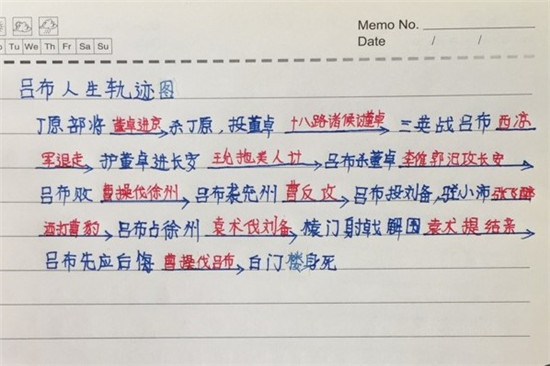 Memo No.
Tu We Th Fr Sa Su
Date / /
吕布人生轨迹图
丁原部将 董卓进京 杀丁原,投董卓 十八路诸侯讨董卓 三英战吕布 西凉
军退走 护董卓进长安 王允施美人计 吕布杀董卓 李傕郭汜攻长安
吕布败 曹操伐徐州 吕布袭兖州 曹反攻 吕布投刘备,驻小沛 张飞醉
酒打曹豹 吕布占徐州 袁术伐刘备 辕门射戟解围 袁术提结亲
吕布先应白悔 曹操伐吕布 白门楼身死